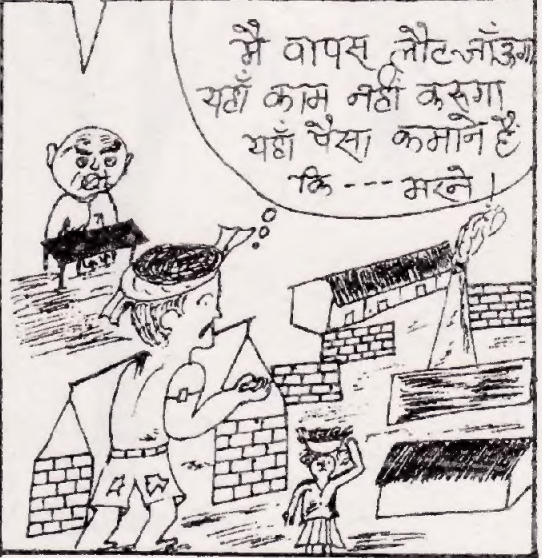 मै वापस लौट जाँऊगा
यहाँ काम नहीं करुगा
यहाँ पैसा कमाने है
कि --- मरने !